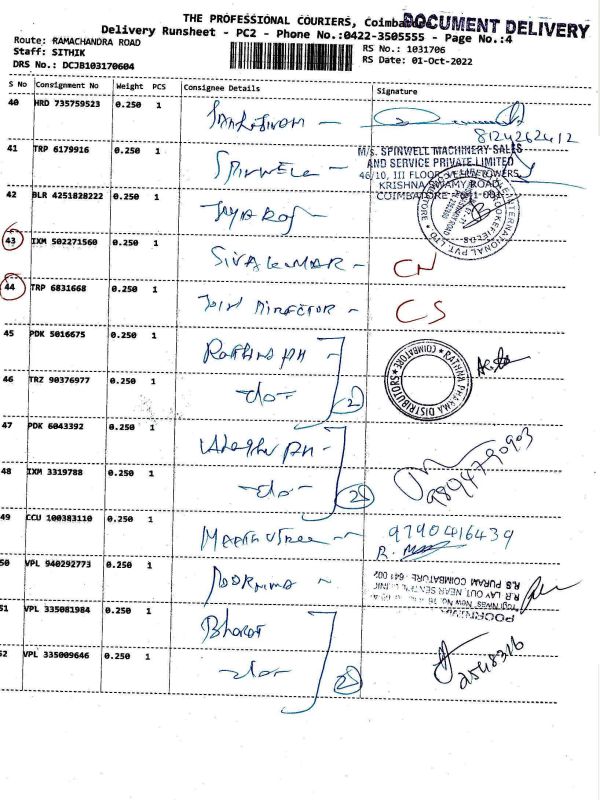 THE PROFESSIONAL COURIERS, Coimbatore
DOCUMENT DELIVERY
Delivery Runsheet - PC2 - Phone No.:0422-3505555 - Page No.:4
Route: RAMACHANDRA ROAD
RS No.: 1031706
Staff: SITHIK
RS Date: 01-Oct-2022
DRS No.: DCJB103170604
S No Consignment No Weight PCS Consignee Details Signature
40 HRD 735759523 0.250 1
8124262412
41 TRP 6179916 0.250 1 SPINWELL
M/S. SPINWELL MACHINERY SALES
AND SERVICE PRIVATE LIMITED
46/10, III FLOOR, TOWERS
KRISHNA SWAMY ROAD
COIMBATORE
42 BLR 4251828222 0.250 1
43 IXM 502271560 0.250 1 SIVAKUMAR - CN
44 TRP 6831668 0.250 1 JOINT DIRECTOR - CS
45 PDK 5016675 0.250 1 Rathna PH
RATHNA PHARMA DISTRIBUTORS * COIMBATORE *
46 TRZ 90376977 0.250 1 -do- 2
47 PDK 6043392 0.250 1
9894790903
48 IXM 3319788 0.250 1 -do- 2
49 CCU 100383110 0.250 1
9790416439
50 VPL 940292773 0.250 1 POORNIMA -
POORNIMA
R.R LAY OUT, NEAR
R.S PURAM COIMBATORE - 641 002
51 VPL 335081984 0.250 1 Bharat
52 VPL 335009646 0.250 1 -do- 2
2548316